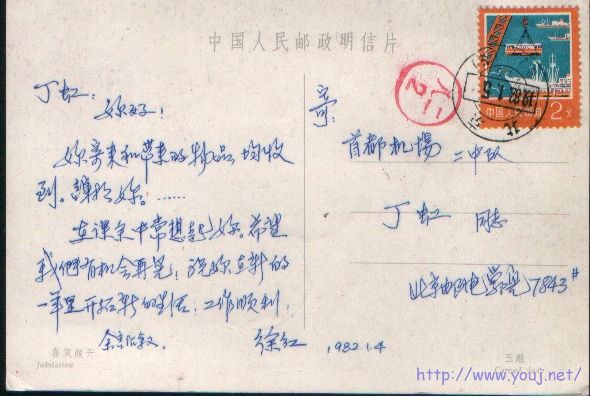 中国人民邮政明信片
丁虹：
你好！
你寄来和带来的物品均收
到。謝於你。……
在课余中常想起你。希望
我們有机会再见！祝你在新的
一年里开拓新的生活，工作顺利！
余言后叙。
徐红 1982.1.4
喜笑颜开
Jubilation
寄
首都机場 二中队
丁虹 同志
北京邮电学院7843#
中国人民邮政 2分
1982.1.5
北京
玉雕
Carved Jade
http://www.youj.net/